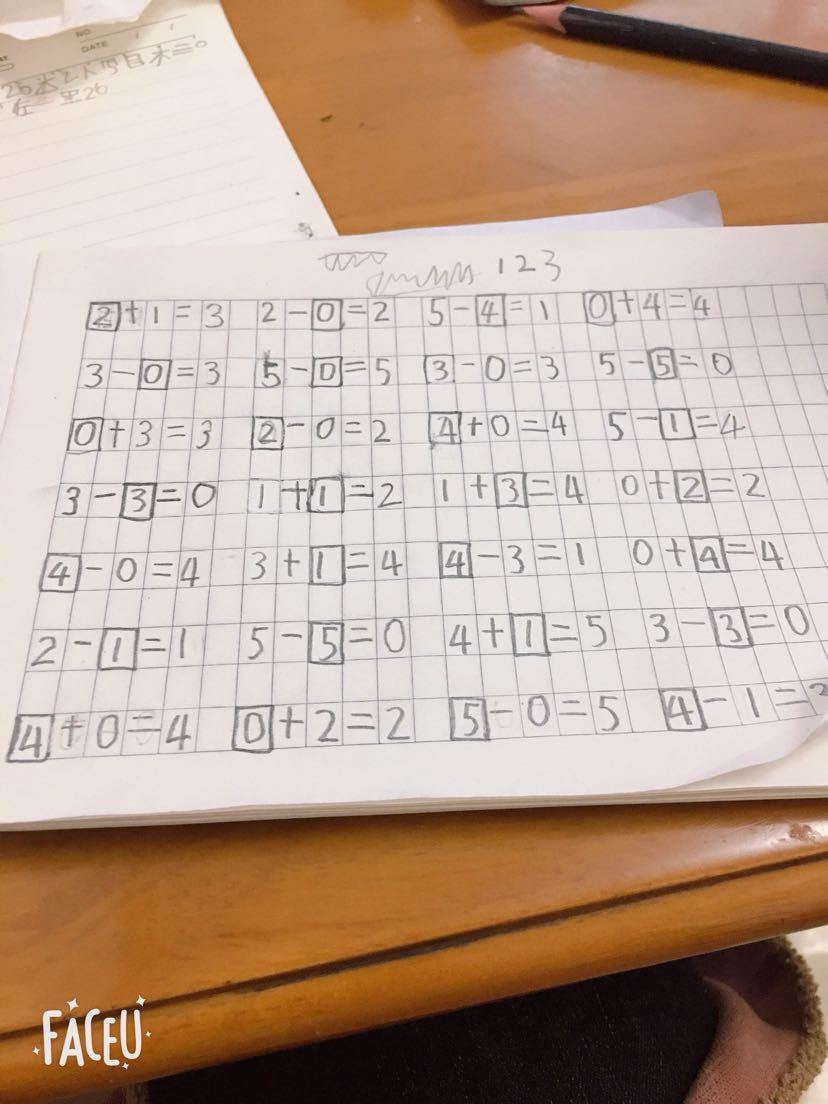 NO
DATE
123
2+1=3 2-0=2 5-4=1 0+4=4
3-0=3 5-0=5 3-0=3 5-5=0
0+3=3 2-0=2 4+0=4 5-1=4
3-3=0 1+1=2 1+3=4 0+2=2
4-0=4 3+1=4 4-3=1 0+4=4
2-1=1 5-5=0 4+1=5 3-3=0
4+0=4 0+2=2 5-0=5 4-1=
FACEU